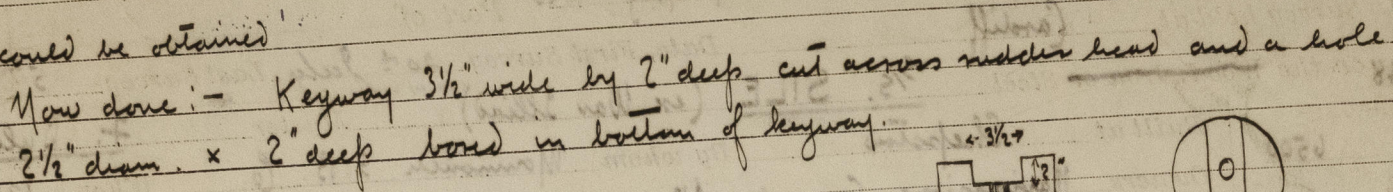 could be obtained'
Now done :- Keyway 3½" wide by 2" deep cut across rudder head and a hole
2½" diam. x 2" deep bored in bottom of keyway.
3½
2"